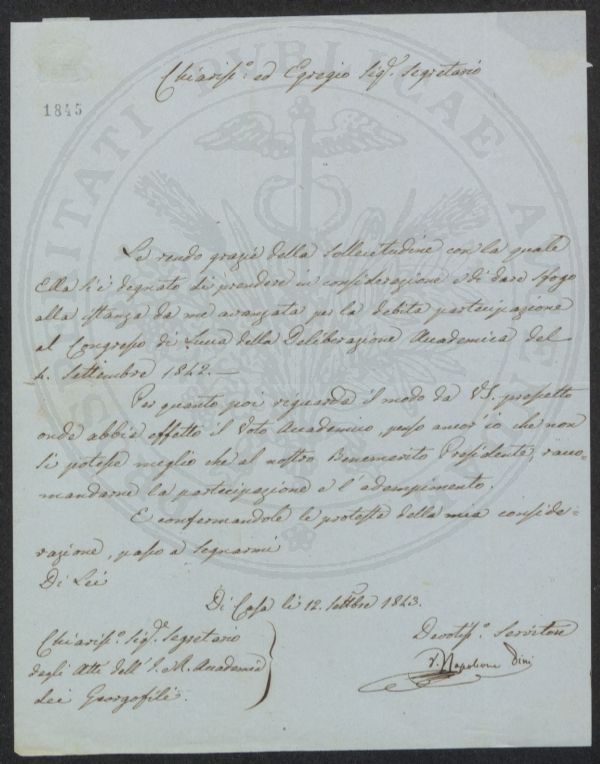 Chiariss.º ed Egregio Sig.ʳ Segretario
1845
Le rendo grazie della sollecitudine con la quale
Ella si è degnato di prendere in considerazione e di dare sfogo
alla istanza da me avanzata per la debita partecipazione
al Congresso di Lucca della Deliberazione Accademica del
4. Settembre 1842.—
Per quanto poi reguarda il modo da V.S. prefetto
onde abbia effetto il Voto Accademico, penso ancor'io che non
si potesse meglio che al nostro Benemerito Presidente, racco-
mandarne la partecipazione e l'adempimento.
E confermandole le proteste della mia conside-
razione, passo a segnarmi
Di Lei
Di Casa li 12. Settbre 1843.
Chiariss.º Sig.ʳ Segretario
degli Atti dell'I. e R. Accademia
dei Georgofili.
Devotiss.º Servitore
Napoleone Pini
PROSPERITATI PUBLICAE AUGENDAE